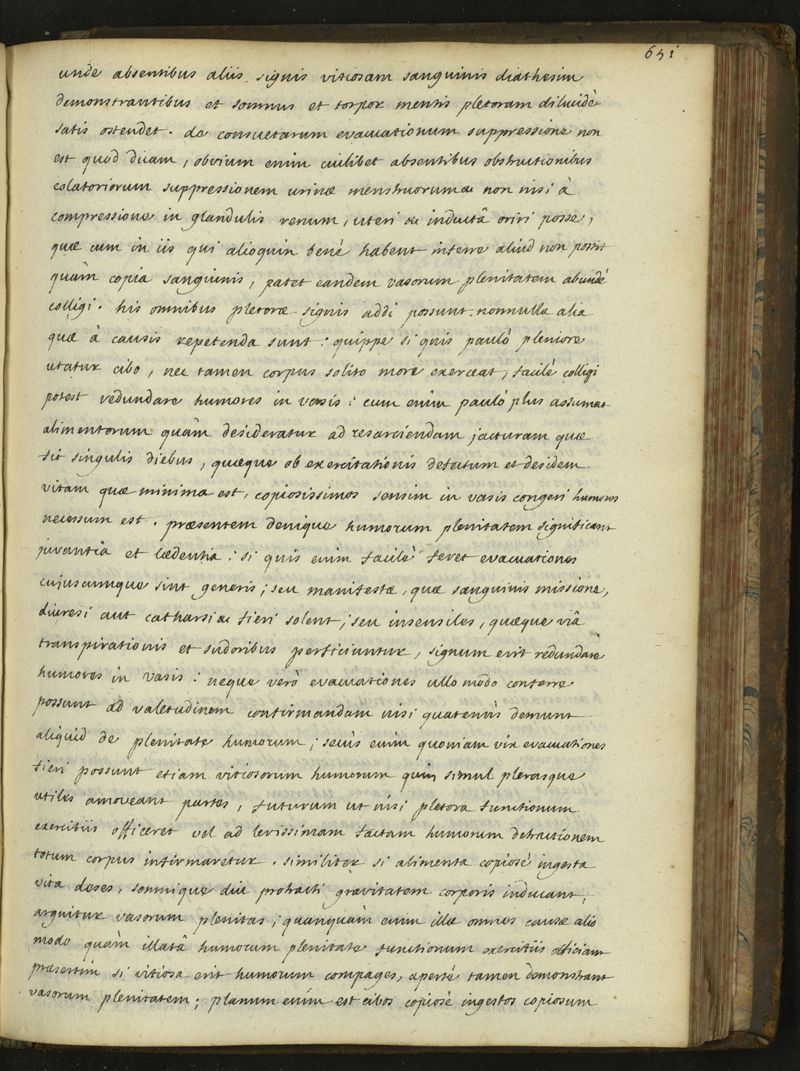 651
unde absentibus aliis signis vitiosam sanguinis diathesim
demonstrantibus et somnus et torpor mentis pletoram dilucidè
satis ostendet. de consuetarum evacuationum suppressione non
est quod dicam, obvium enim cuilibet absentibus obstructionibus
colatoriorum suppressionem urinæ menstruorum &c non nisi à
compressione in glandulis renum, uteri &c inductâ oriri posse,
quæ cum in iis qui alioquin benè habent inferre aliud non possit
quàm copia sanguinis, patet eandem vasorum plenitatem abundè
colligi. his omnibus pletoræ signis addi possunt nonnulla alia
quæ à causis repetenda sunt: quippe si quis paulò pleniore
utatur cibo, nec tamen corpus solito more exerceat, facilè colligi
potest redundare humores in vasis: cum enim paulò plus assumat
alimentorum quàm desideratur ad resarciendam jacturam quæ
fit singulis diebus, quæque ob exercitationis defectum et desidem
vitam quæ minima est, copiosissimos sensim in vasis congeri humores
necessum est. præsentem denique humorum plenitatem significant
juvantia et lædentia: si quis enim facilè feret evacuationes
cujuscumque sint generis; seu manifestæ, quæ sanguinis missione,
diuresi aut catharsi &c fieri solent; seu insensiles, quæque viâ
transpirationis et sudoribus perficiuntur, signum erit redundare
humores in vasis: neque verò evacuationes ullo modo conferre
possunt ad valetudinem confirmandam nisi quatenùs demunt
aliquid de plenitate humorum; secùs enim quoniam vix evacuationes
fieri possunt etiam vitiosorum humorum quin simul plerasque
utiles amoveant partes, futurum ut nisi pletora functionum
exercitiis officeret vel ad levissimam factam humorum detractionem
totum corpus infirmaretur. similiter si alimenta copiosè ingesta
vita deses, somnique diu protracti gravitatem corporis inducant,
arguitur vasorum plenitas; quanquàm enim illæ omnes causæ alio
modo quàm illatâ humorum plenitate functionum exercitiis officiant
præsertim si vitiosa erit humorum compages, apertè tamen demonstrant
vasorum plenitatem; planum enim est cibos copiosè ingestos copiosum